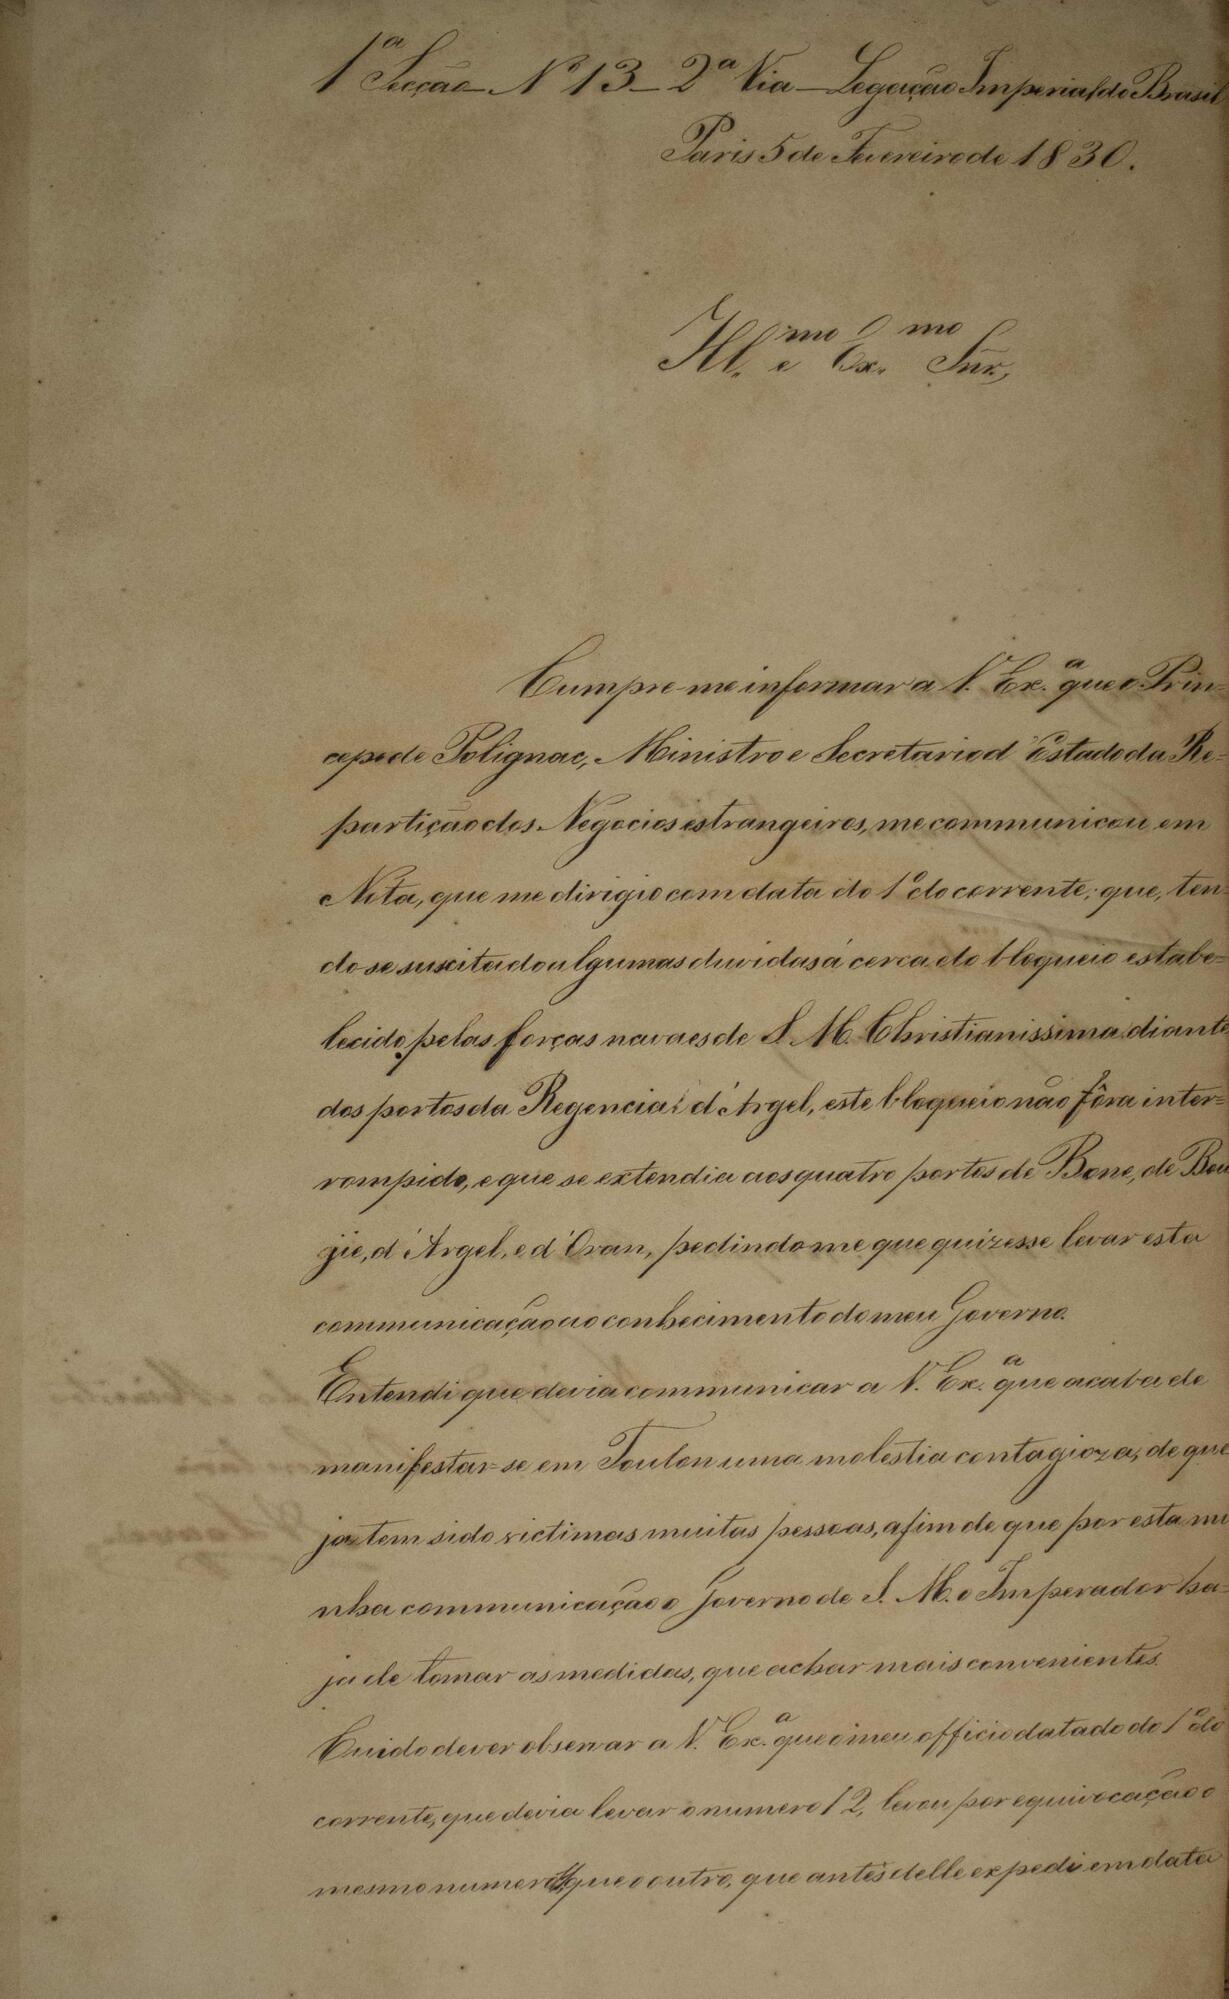 1ª Secção_ Nº 13_ 2ª Via_ Legação Imperial do Brasil
Paris 5 de Fevereiro de 1830.
Ill.mo e Ex.mo Snr.,
Cumpre-me informar a V. Ex.ª que o Prin-
cepe de Polignac, Ministro e Secretario d'Estado da Re-
partição dos Negocios estrangeiros, me communicou em
Nota, que me dirigio com data do 1º do corrente; que, ten-
do se suscitado algumas duvidas á cerca do bloqueio estabe-
lecido pelas forças navaes de S. M. Christianissima diante
dos portos da Regencia d'Argel, este bloqueio não fôra inter-
rompido, e que se extendia aos quatro portos de Bone, de Bou
gie, d'Argel, e d'Oran, pedindo me que quizesse levar esta
communicação ao conhecimento do meu Governo.
Entendi que devia communicar a V. Ex.ª que acaba de
manifestar-se em Toulon uma molestia contagioza, de que
ja tem sido victimas muitas pessoas, afim de que por esta mi
nha communicação o Governo de S. M. o Imperador ha-
ja de tomar as medidas, que achar mais convenientes.
Cuido dever observar a V. Ex.ª que o meu officio datado do 1º do
corrente, que devia levar o numero 12, levou por equivocação o
mesmo numero que o outro, que antes delle expedi em data